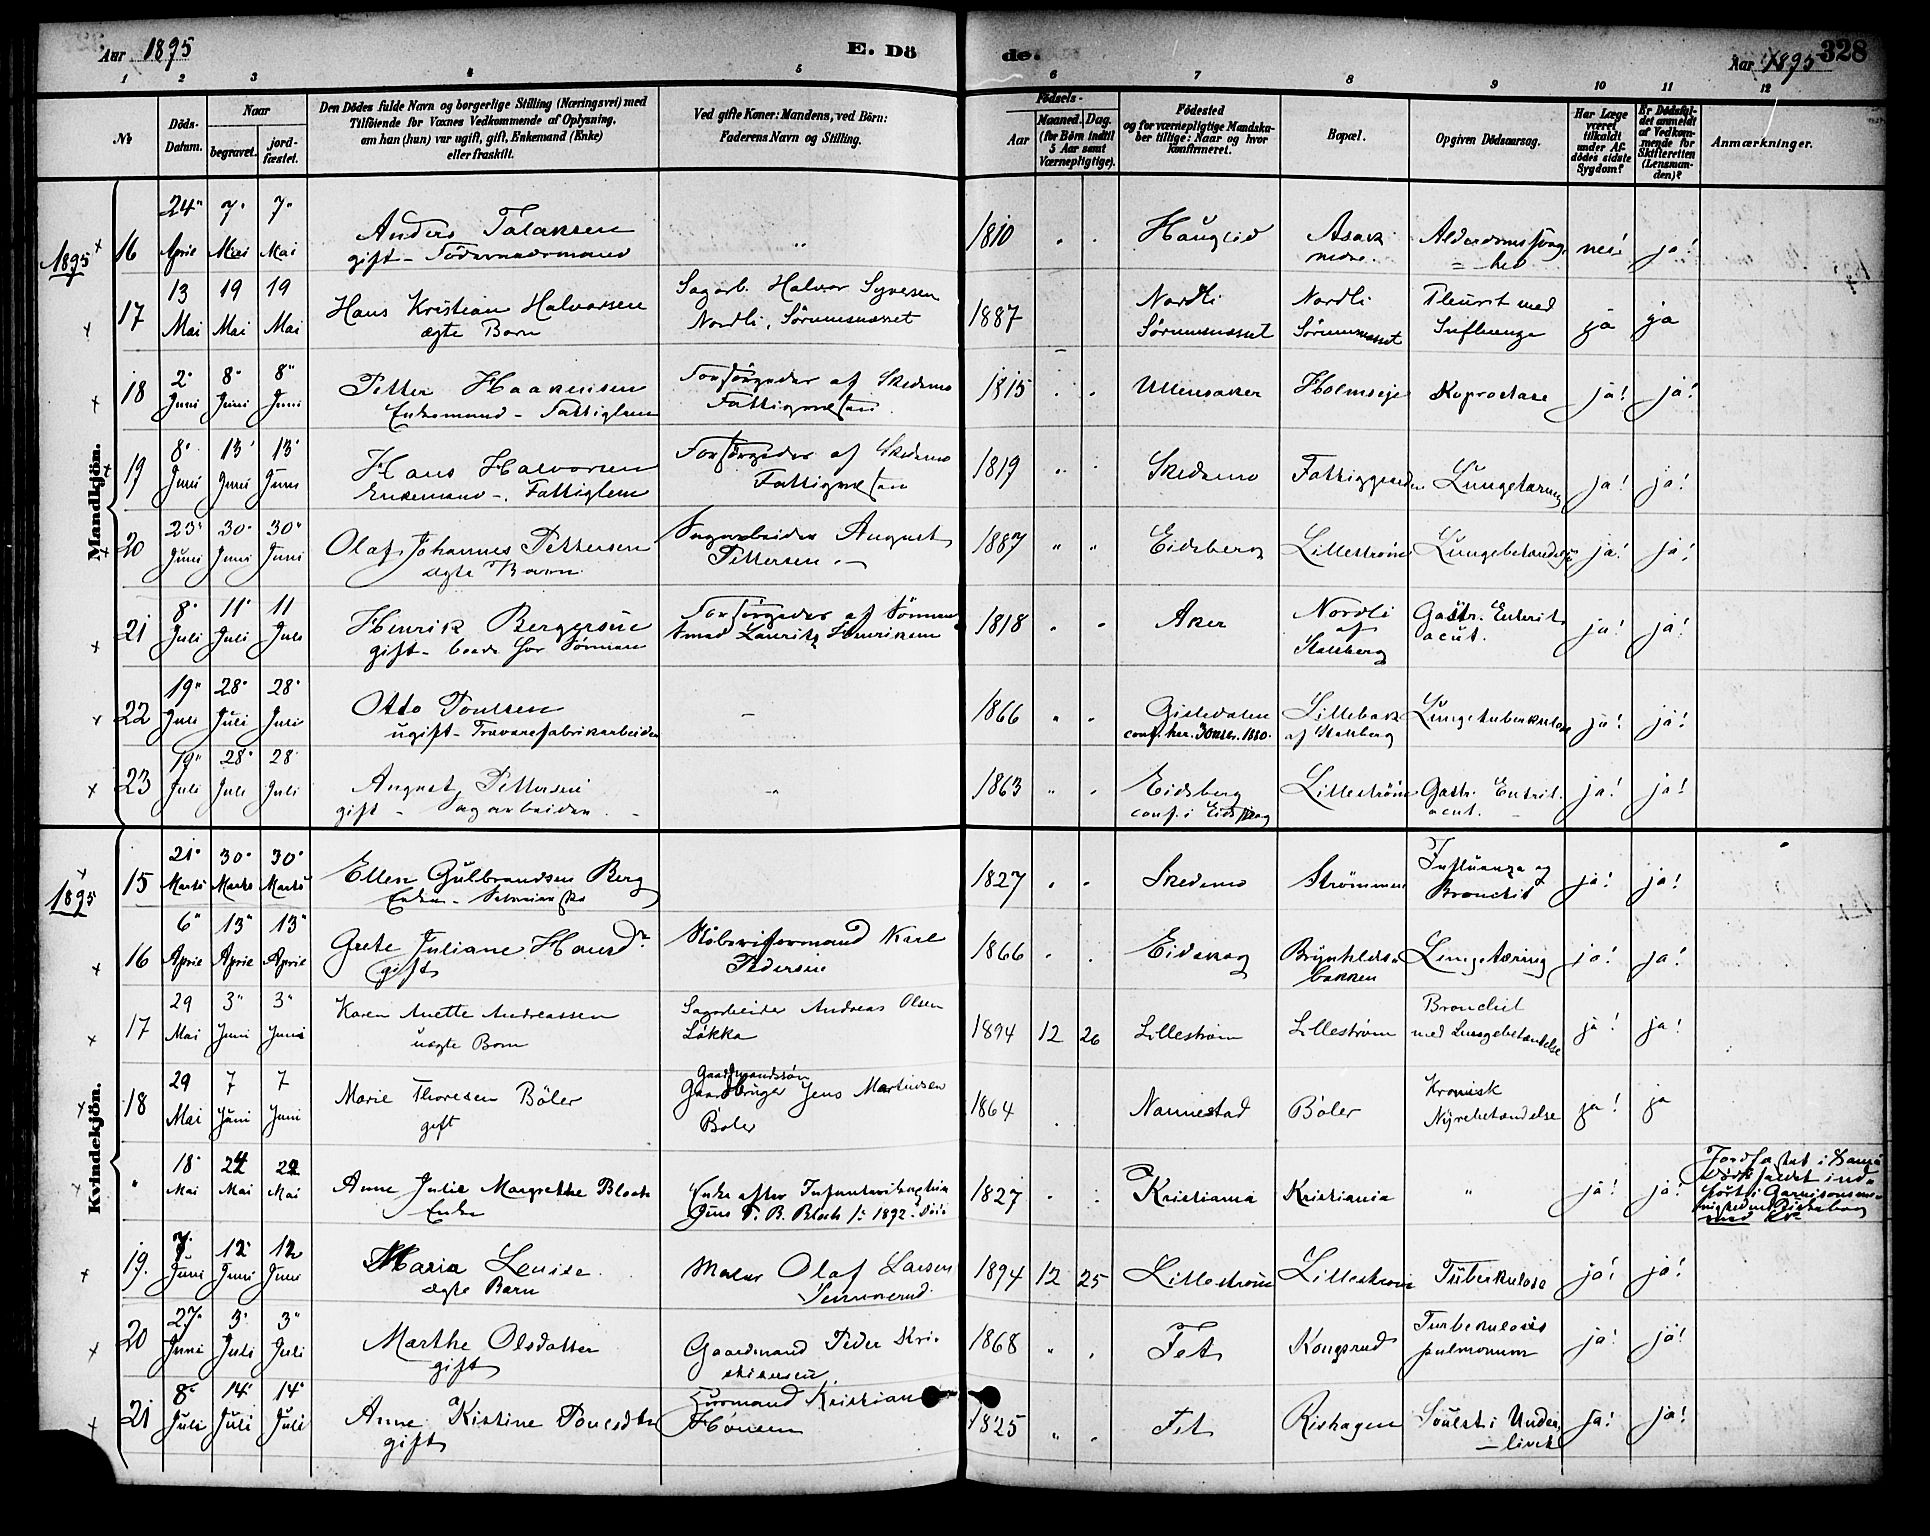 Aar 1895
E. Dö
de.
Aar 1895
328
1 2 3 4 5 6 7 8 9 10 11 12
№
Döds-Datum.
Naar
begravet.
jordfæstet.
Den Dödes fulde Navn og borgerlige Stilling (Næringsvei) med
Tilföiende for Voxnes Vedkommende af Oplysning,
om han (hun) var ugift, gift, Enkemand (Enke)
eller fraskilt.
Ved gifte Koner: Mandens, ved Börn:
Faderens Navn og Stilling.
Födsels-
Aar
Maaned. Dag.
(for Börn indtil
5 Aar samt
Værnepligtige).
Födested
og for værnepligtige Mandska-
ber tillige: Naar og hvor
konfirmeret.
Bopæl.
Opgiven Dödsaarsag.
Har Læge
været
tilkaldt
under Af-
dödes sidste
Sygdom?
Er Dödsfal-
det anmeldt
af Vedkom-
mende for
Skifteretten
(Lensman-
den)?
Anmærkninger.
Mandkjön.
1895
16 24 April 7 Mai 7 Mai Anders
gift - 1810 Hauglid Asak nedre. nei! ja!
17 13 Mai 19 Mai 19 Mai Hans Kristian Halvorsen
ægte Barn Sagarb. Halvor Syversen
Nordli, Sørumsnesset 1887 Nordli
Sørumsnesset Nordli
Sørumsnesset Pleurit med
Influenza ja ja
18 2 Juni 8 Juni 8 Juni Petter Haakensen
Enkemand - Fattiglem Forsørgedes af Skedsmo
1815 Ullensaker ja! ja!
19 8 Juni 13 Juni 13 Juni Hans Halvorsen
Enkemand - Fattiglem Forsørgedes af Skedsmo
1819 Skedsmo Lungetæring ja! ja!
20 23 Juni 30 Juni 30 Juni Olaf Johannes Pettersen
ægte Barn Sagarbeider August
Pettersen 1887 Eidsberg Lillestrøm Lungebetændelse ja! ja!
21 8 Juli 11 Juli 11 Juli Henrik Bergersen
gift - boede hos Sønnen Forsørgedes af Sønnen
Lauritz Henriksen 1818 Aker Nordli
af
Stalsberg Gastr. Enterit
acut. ja! ja!
22 19 Juli 28 Juli 28 Juli Otto Poulsen
ugift - Trævarefabrikarbeider 1866 Lillebæk
af Stalsberg Lungetuberkulose ja! ja!
23 19 Juli 28 Juli 28 Juli August Pettersen
gift - Sagarbeider 1863 Eidsberg
conf. i Eidsberg Lillestrøm Gastr. Enterit.
acut. ja! ja!
Kvindekjön.
1895
15 21 Marts 30 Marts 30 Marts Ellen Gulbrandsen Berg
Enke - 1827 Skedsmo Strømmen Influenza og
Bronchit ja! ja!
16 6 April 13 April 13 April Grete Juliane Hansdr.
gift Karl
Pedersen 1866 Eidskog Brynhilds-
bakken Lungetæring ja! ja!
17 29 Mai 3 Juni 3 Juni Karen Anette Andreassen
uægte Barn Sagarbeider Andreas Olsen
Løkka 1894 12 26 Lillestrøm Lillestrøm Bronchit
med Lungebetændelse ja! ja!
18 29 Mai 7 Juni 7 Juni Marie Thoresen Böler
gift Gaardmandssøn
Gaardbruger Jens Martinsen
Böler 1864 Nannestad Böler Kronisk
Nyrebetændelse ja! ja
" 18 Mai 24 Mai 24 Mai Anne Julie Margrethe Bloch
Enke Enke efter Infanterikaptein
Jens P. B. Bloch 1892 1827 Kristiania Kristiania " ja! ja! Jordfæstet i
Dödsfaldet ind-
ført i Garnisonsme-
nighedens Kirkebog
19. 7 Juni 12 Juni 12 Juni Maria Louise
ægte Barn Maler Olaf Larsen
1894 12 25 Lillestrøm Lillestrøm Tuberkulose ja! ja!
20 27 Juni 3 Juli 3 Juli Marthe Olsdatter
gift Gaardmand Peder Kri-
stiansen 1868 Fet Kongsrud Turberkulosis
pulmonum ja! ja!
21 8 Juli 14 Juli 14 Juli Anne Kistine Poulsdtr
gift Kristian
Hansen 1825 Fet Rishagen Svulst i Under-
livet ja! ja!